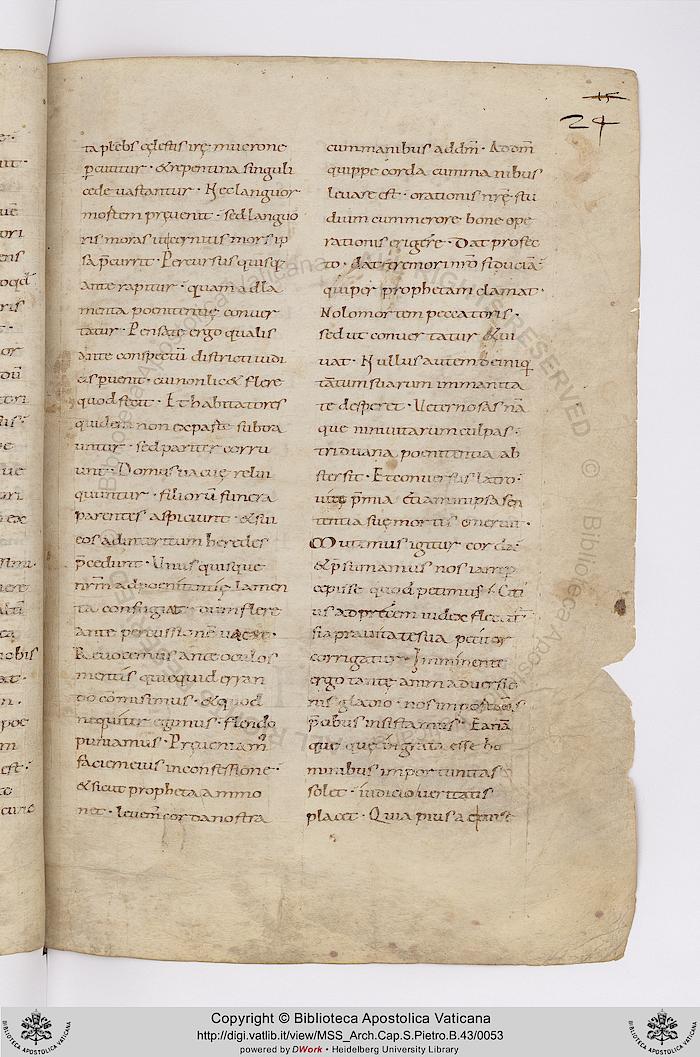 15
24
ta plebs cęlestis irę mucrone
percutitur · & repentina singuli
cede uastantur · Nec languor
mortem pręuenit · sed languo
ris moras ut cernitis mors ip
sa p̄currit · Percussus quisq;
ante rapitur · quam ad la
menta poenitentię conuer
tatur · Pensate ergo qualis
ante conspectū districti iudi
cis puenit · cui non lic& flere
quod fecit · Et habitatores
quidem non ex parte subtra
untur · sed pariter corru
unt · Domus uacuę relin
quuntur · filiorū funera
parentes aspiciunt · & sui
eos ad interitum heredes
p̄cedunt · Unus quisque
nr̄m ad poenitentię lamen
ta confugiat · dum flere
ante percussionē uacat ·
Reuocemus ante oculos
mentis quicquid erran
do comisimus · & quod
nequiter egimus · flendo
puniamus · Pręueniam
faciem eius in confessione ·
& sicut propheta ammo
net · leuem corda nostra
cum manibus ad dm̄ · Ad dm̄
quippe corda cum manibus
leuare est · orationis nrę stu
dium cum merore bone ope
rationis erigere · Dat profec
to · dat tremori nr̄o fiduciā
qui per prophetam clamat ·
Nolo mortem peccatoris ·
sed ut conuertatur & ui
uat · Nullus autem de iniq
tatum suarum immanita
te desperet · Ueternosas nā
que niniuitarum culpas ·
triduana poenitentia ab
stersit · Et conuersus latro ·
uitę p̄mia etiam in ipsa sen
tentia suę mortis meruit ·
Mutemus igitur corda ·
& p̄sumamus nos iam
cepisse quod petimus · Citi
us ad precem iudex flectit
si a prauitate sua petitor
corrigatur · Imminente
ergo tantę animaduersio
nis gladio · nos
p̄cibus insistamus · Ea nā
que quę ingrata esse ho
minibus importunitas
solet · iudicio ueritatis
placet · Quia pius ac
Copyright © Biblioteca Apostolica Vaticana
http://digi.vatlib.it/view/MSS_Arch.Cap.S.Pietro.B.43/0053
powered by DWork · Heidelberg University Library